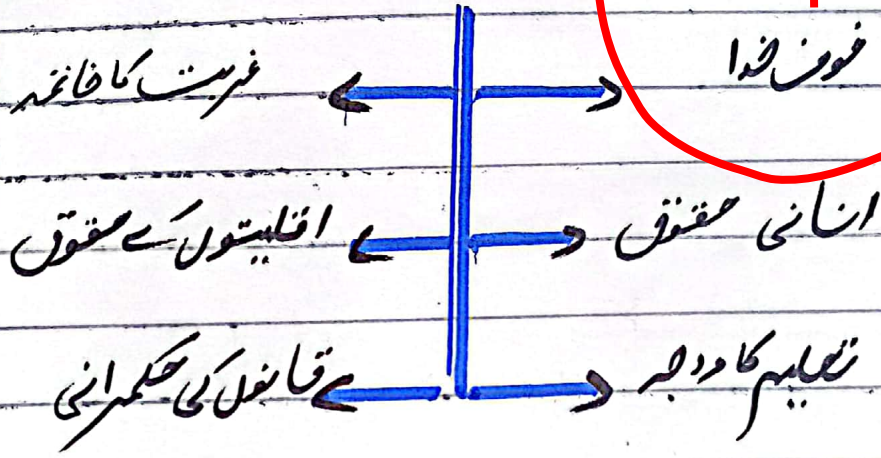 خوف خدا
غربت کا خاتمہ
انسانی حقوق
اقلیتوں کے حقوق
تعلیم کا درجہ
قانون کی حکمرانی